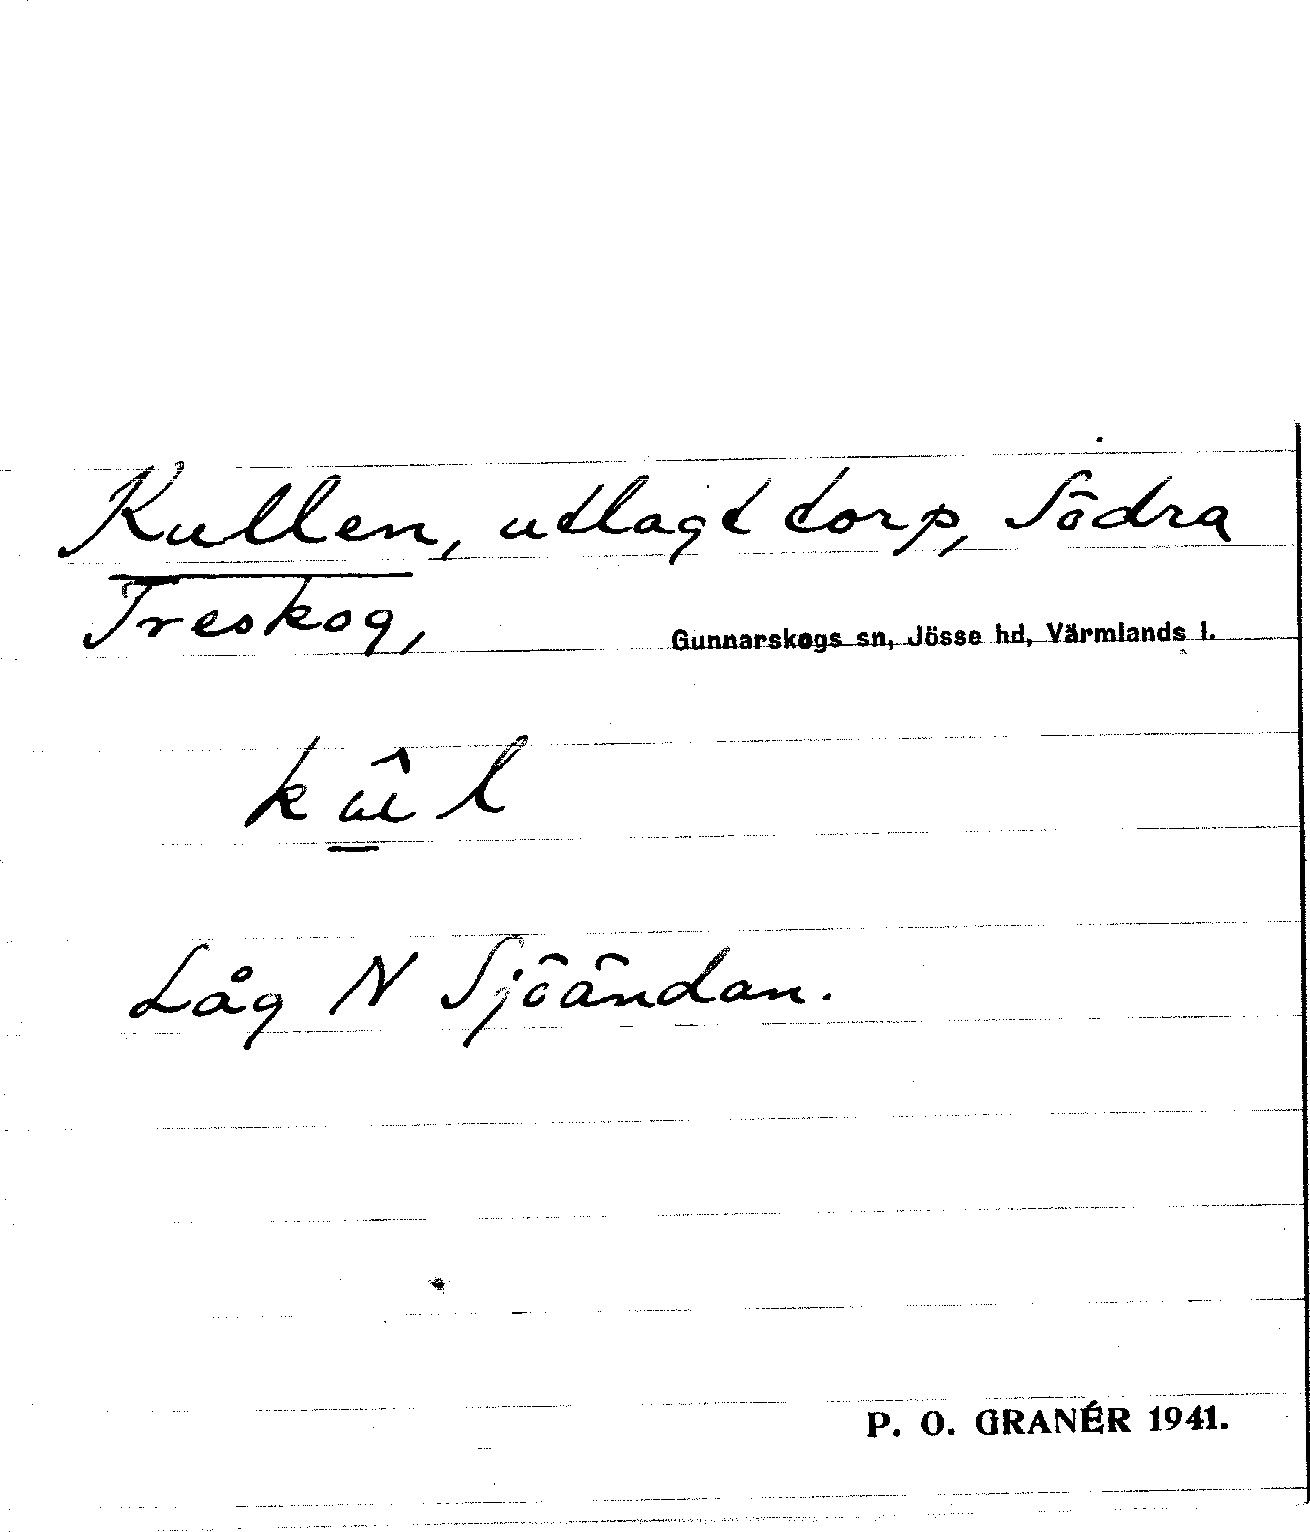 Kullen, utlagt torp, Södra
Treskog, Gunnarskogs sn, Jösse hd, Värmlands l.
Låg N Sjöändan.
P. O. GRANÉR 1941.